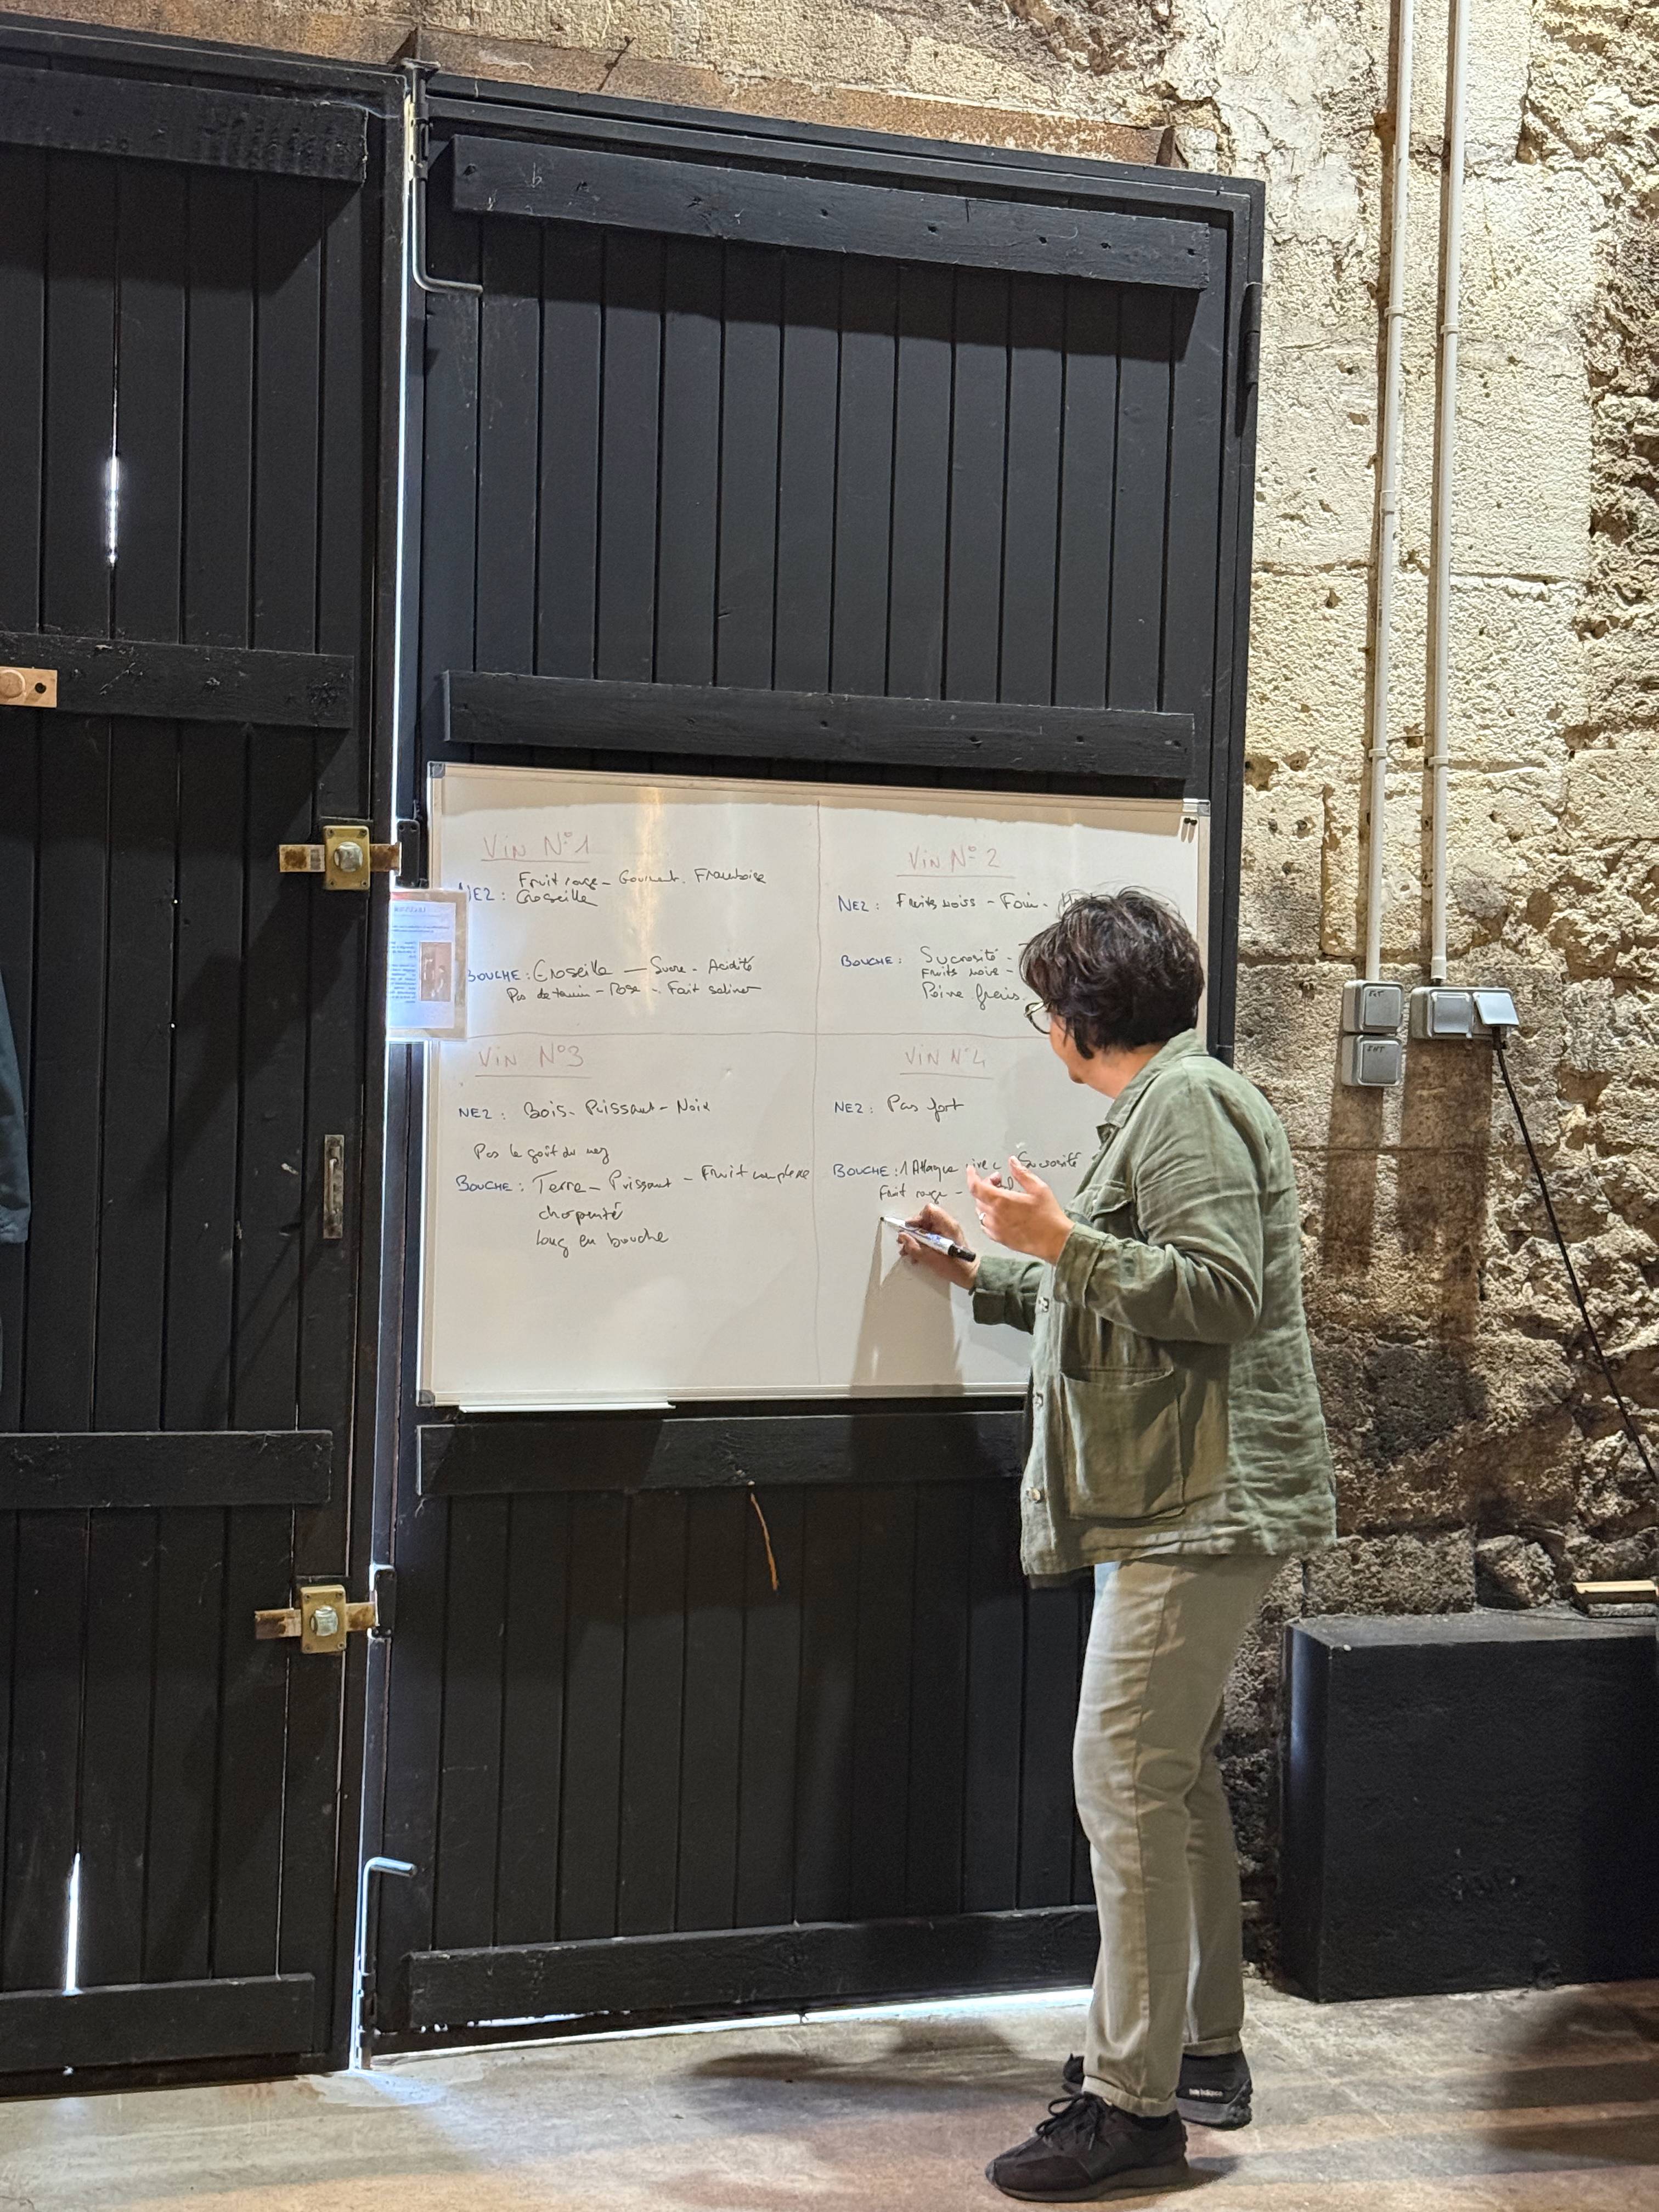 Vin N°1
Fruit rouge - Gourmet. Framboise
NEZ : Groseille
BOUCHE : Groseille — Sucre - Acidité
Pas de tanin - Rose - Fait saliver
Vin N°2
NEZ : Fruits noirs - Foin -
BOUCHE : Sucrosité -
Fruits noirs -
Poivre frais.
Vin N°3
NEZ : Bois - Puissant - Noix
Pas le goût du nez
BOUCHE : Terre - Puissant - Fruit complexe
charpenté
long en bouche
Vin N°4
NEZ : Pas fort
BOUCHE : 1 Attaque Sucrosité
Fruit rouge -
new balance